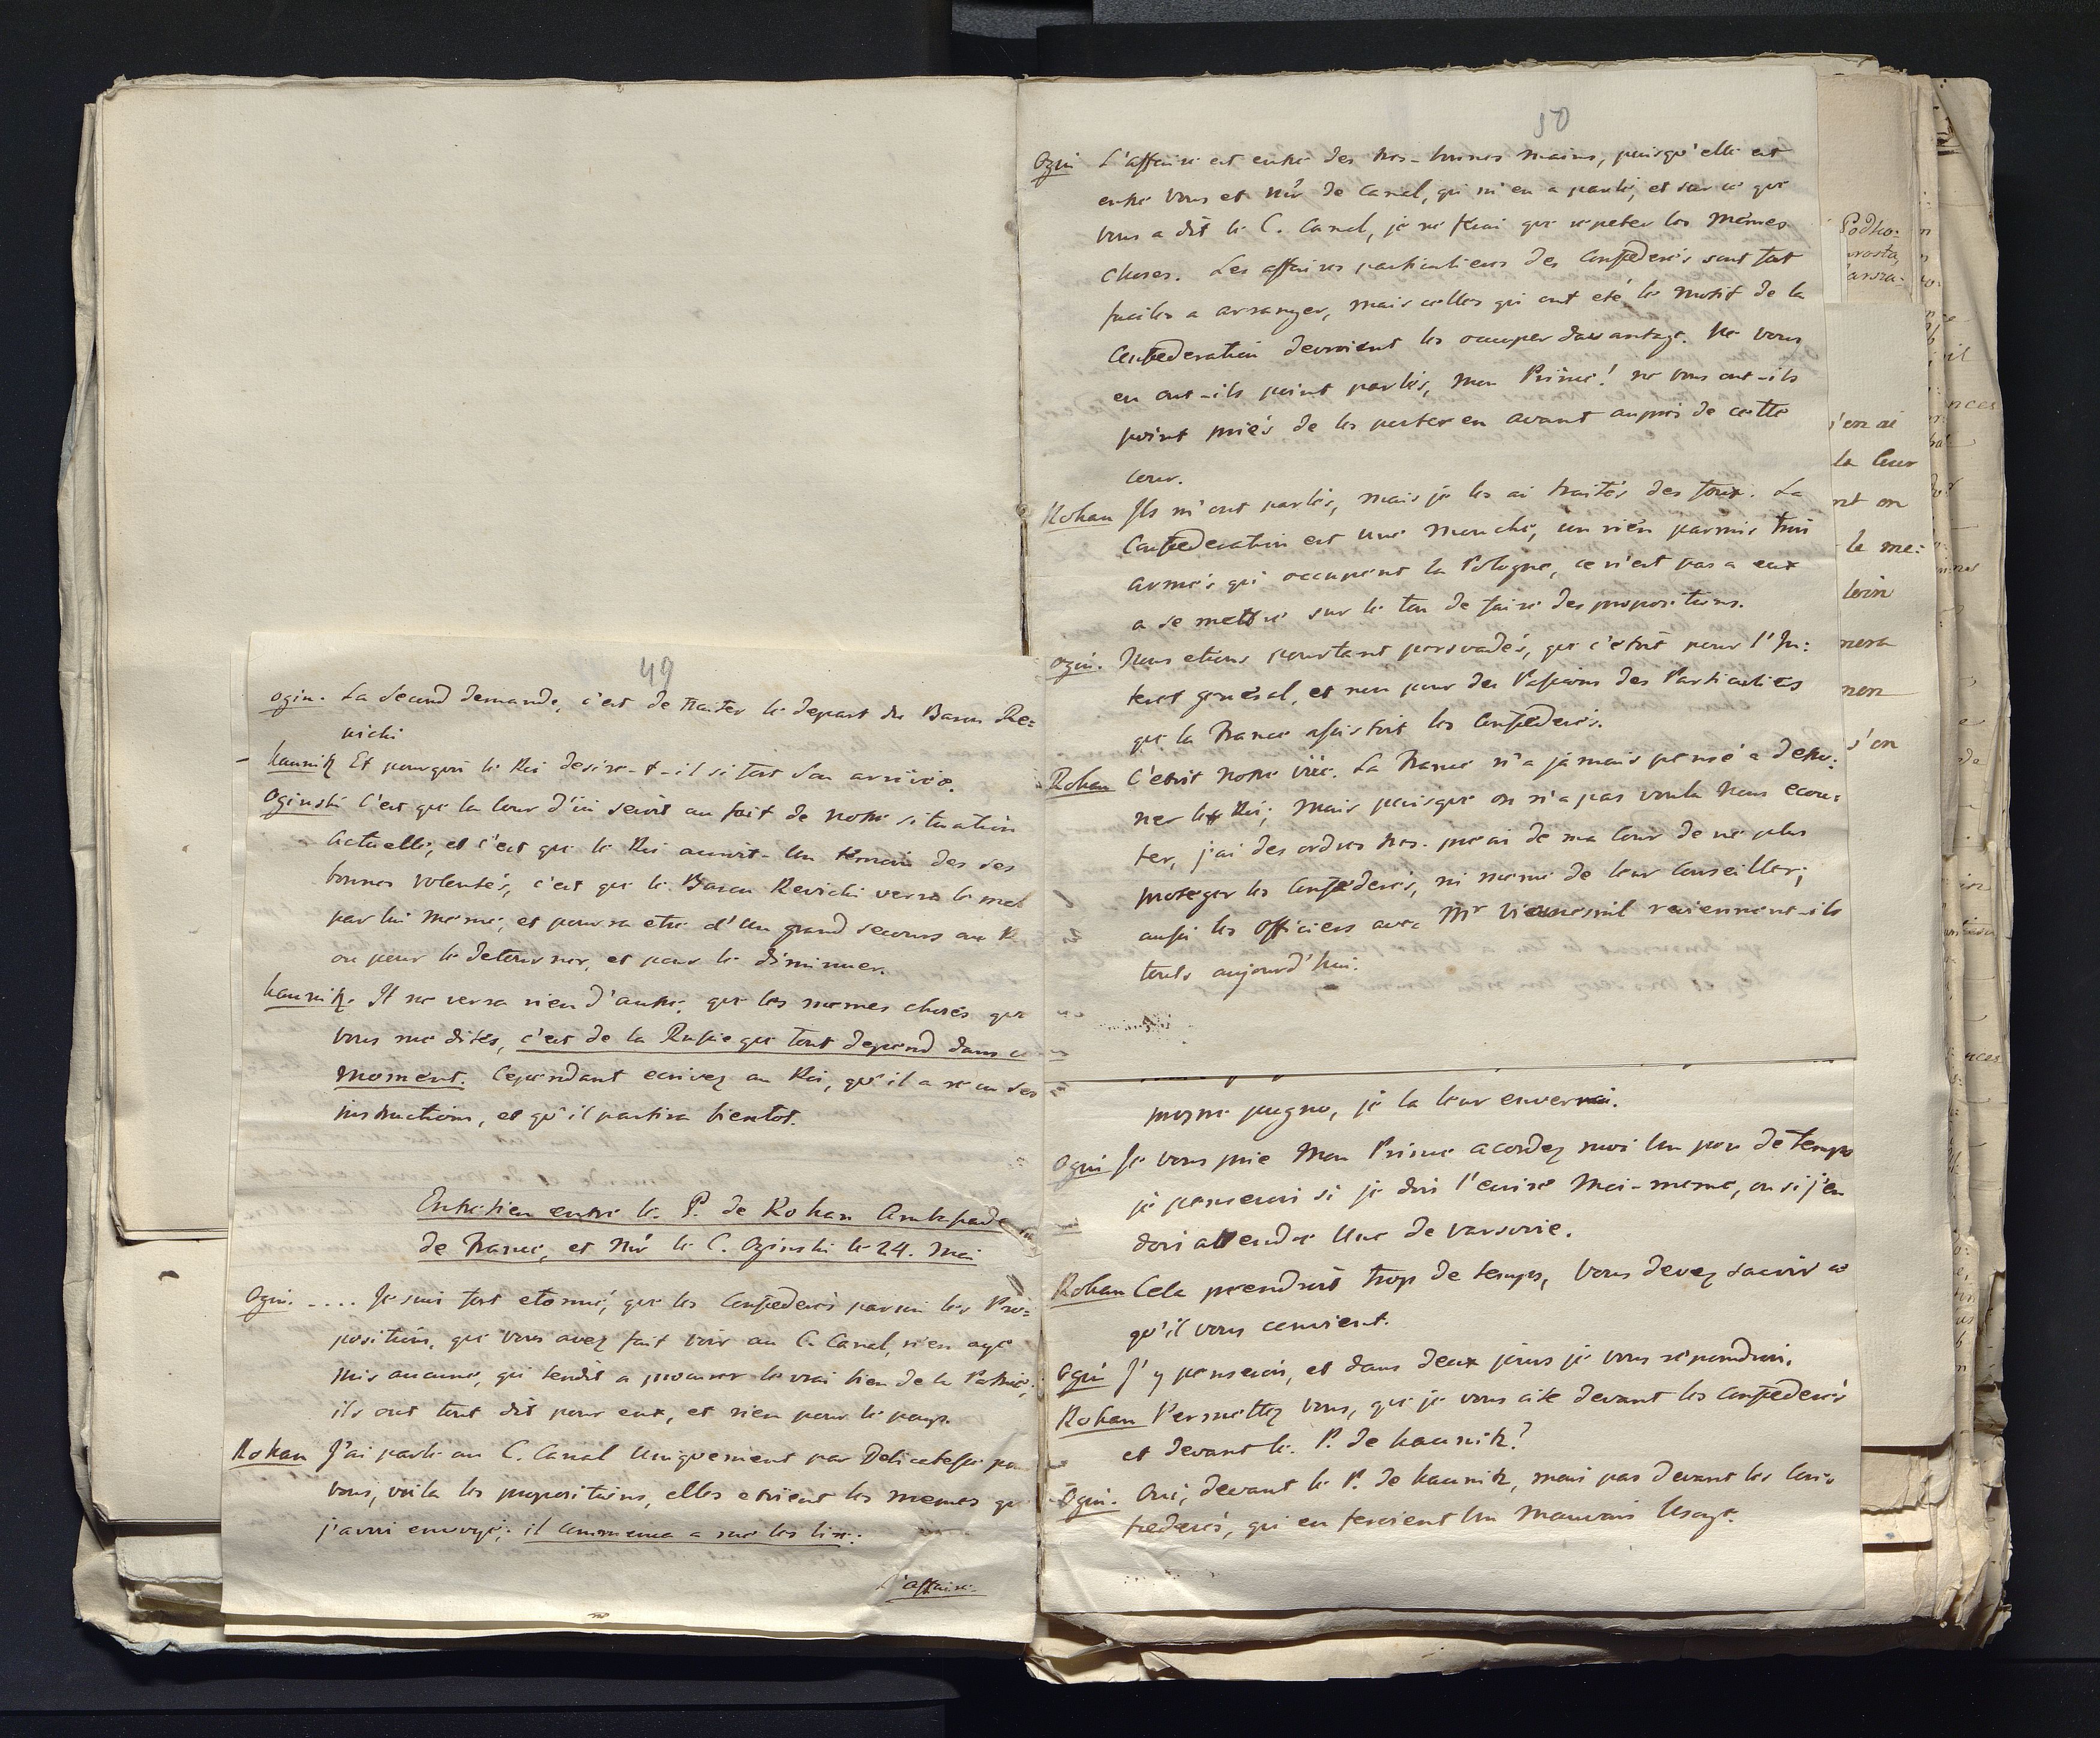 49
Ogin. La Second demande, c'est de traiter le depart du Baron Re=
vichi
Kaunitz Et pourquoi le Roi desire-t-il si tort son arrivée.
Oginski C'est que la Cour d'ici seroit au fait de notre situation
actuelle, et c'est que le Roi auroit un temoin des ses
bonnes volentés, c'est que le Baron Revichi verra le mal
par lui meme, et pourra etre d'un grand secours au Roi
ou pour le detourner, et pour le diminuer.
Kaunitz. Il ne verra rien d'autre, que les memes choses que
vous me dites, c'est de la Russie que tout depend dans ce
moment. Cependant ecrivez au Roi, qu'il a reçu ses
instructions, et qu'il partira bientot.
Entretien entre le P. de Rohan Ambassade
de France, et Mr le C. Oginski le 24. Mai
Ogin. .... Je suis fort etonné, que les Confederés parmi les Pro=
positions, que vous avez fait voir au C. Canal, n'en aye
mis aucune, qui tendit a procurer le vrai bien de la Patrie,
ils ont tout dit pour eux, et rien pour le pays.
Rohan J'ai parlé au C. Canal uniquement par Delicatesse pour
vous, voila les propositions, elles etoient les memes que
j'avoi envoyé; il commenca a me les lire.
L'affaire.
50
Ogin L'affaire est entre des tres-bonnes mains, puisqu'elle est
entre vous et Mr de Canal, qui m'en a parlé, et sur ce que
vous a dit le C. Canal, je ne ferai que repeter les mêmes
choses. Les affaires particulieres des Confederés sont fort
faciles a arranger, mais celles qui ont eté le motif de la
Confederation devroient les occuper davantage. Ne vous
en ont-ils point parlés, mon Prince! ne vous ont-ils
point priés de les porter en avant aupres de cette
cour.
Rohan Ils m'ont parlés, mais je les ai traités des foux. La
Confederation est une mouche, un rien parmis trois
armés qui occupent la Pologne, ce n'est pas a eux
a se mettre sur le ton de faire des propositions.
Ogin. Nous etions pourtant persuadés, que c'etoit pour l'In:
teret general, et non pour des Passions des Particuliers
que la France assistoit les Confederés.
Rohan C'etoit notre vüe. La France n'a jamais pensé a detro:
ner le Roi; mais puisque on n'a pas voulu nous ecou:
ter, j'ai des ordres tres-precis de ma Cour de ne plus
proteger les Confederés, ni meme de leur Conseiller;
aussi les officiers avec Mr Viomenil reviennent-ils
touts aujourd'hui.
propre pugno, je la leur enverrai.
Ogin Je vous prie Mon Prince acordez moi un peu de temps
je penserai si je dois l'ecrire Moi-meme, ou si j'en
dois attendre une de varsovie.
Rohan Cela prendroit trop de temps, vous devez savoir ce
qu'il vous convient.
Ogin J'y penserai, et dans deux jours je vous repondrai.
Rohan Permettez vous, que je vous cite devant les Confederés
et devant le P. de Kaunitz?
Ogin. Oui, devant le P. de Kaunitz, mais pas devant les Con=
federés, qui en feroient un mauvais usage.
Podko:
j'en ai
la leur
nt on
le me:
loin
nera
non
s'en